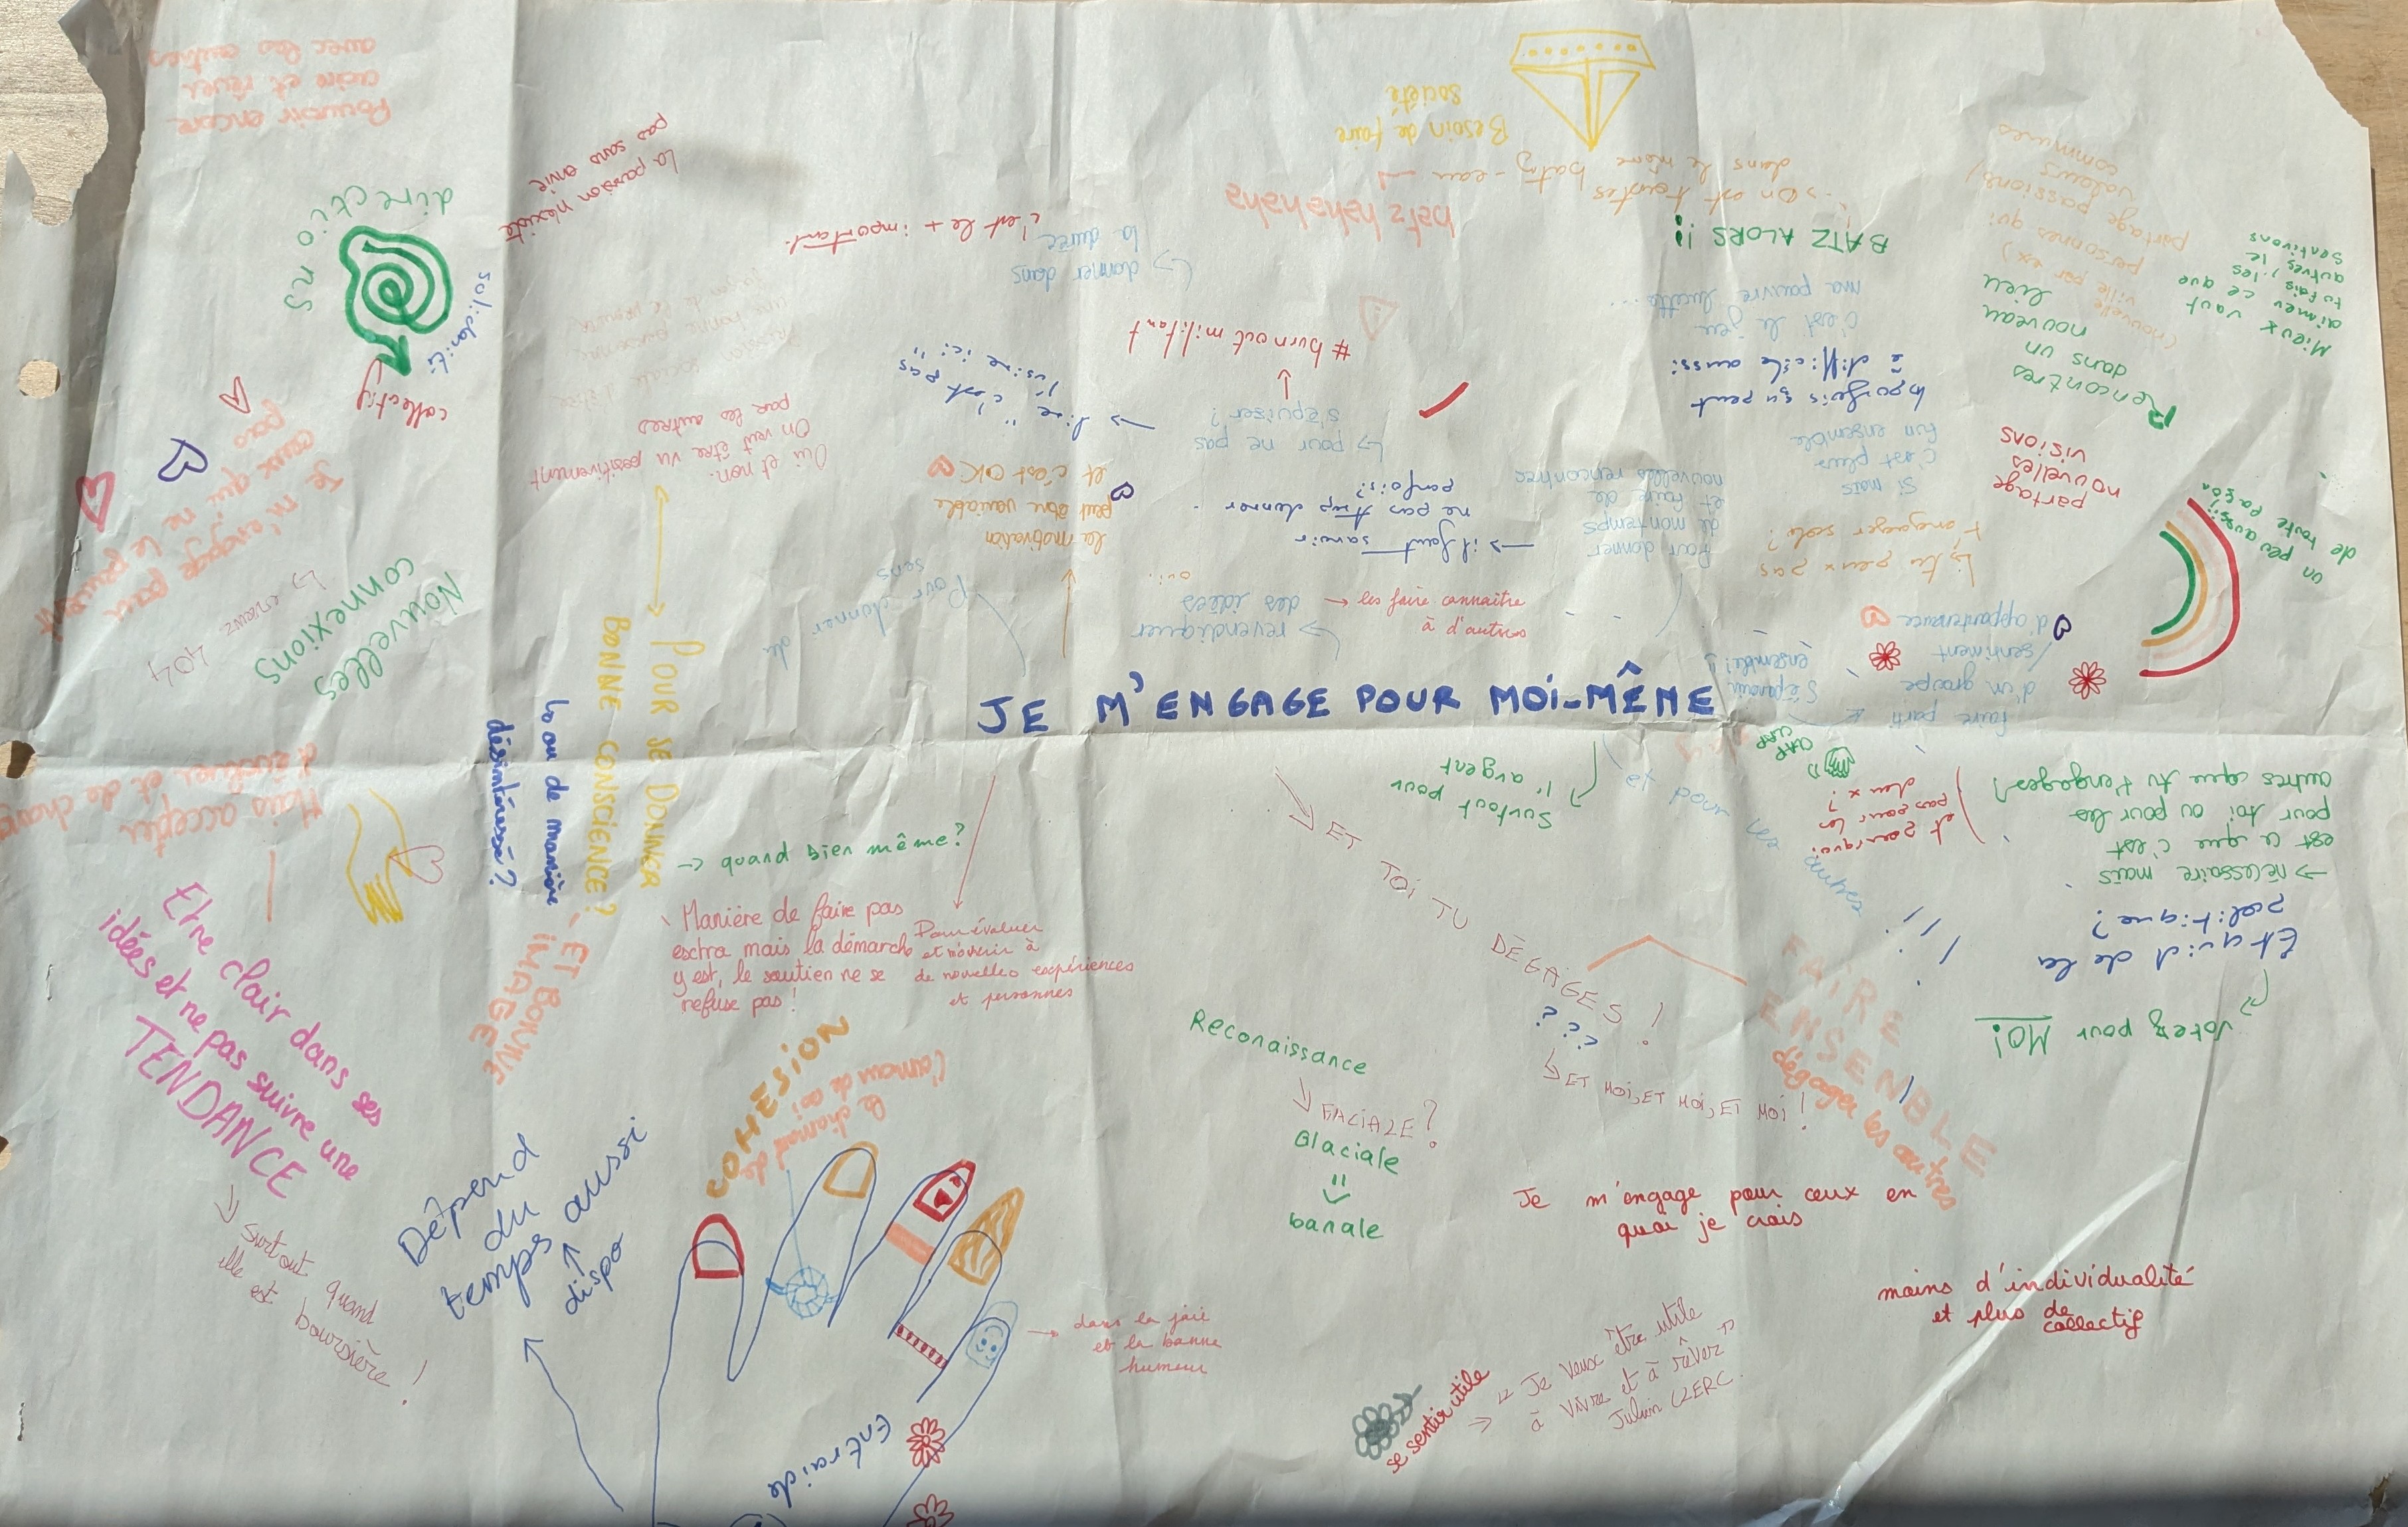 JE M'ENGAGE POUR MOI-MÊME
Pouvoir encore
croire et rêver
avec les autres
directions
solidarité
collectif
La passion n'existe
pas sans envie
Je m'engage pour
ceux qui ne le peuvent
pas
Nouvelles
connexions
↳ erreur
404
Oui et non.
On veut être vu positivement
par les autres
POUR SE DONNER
BONNE CONSCIENCE?
ET BONNE
IMAGE
ou de manière
désintéressé?
Mais accepter
d'évoluer et de changer
Etre clair dans ses
idées et ne pas suivre une
TENDANCE
↳ surtout quand
elle est boursière !
Dépend
du
temps aussi
↑
dispo
-> quand bien même?
Manière de faire pas
extra mais la démarche
y est, le soutien ne se
refuse pas!
Pour évoluer
et m'ouvrir à
de nouvelles expériences
et personnes
COHESION
le diamant de
l'amour de soi
→ dans la joie
et la bonne
humeur
Entraide
Pour donner du
sens
la motivation
peut être variable
et c'est OK
→ revendiquer
des idées
oui..
→ les faire connaître
à d'autres
→ il faut savoir
ne pas trop donner
parfois?
↳ pour ne pas
s'épuiser?
# burn out militant
→ dire "c'est pas
l'usine ici"
↳ donner dans
la durée
c'est le + important.
Pour donner
de mon temps
et faire de
nouvelles rencontres
batz hahahaha
Besoin de faire
société
-> On est toustes
dans le même batz-eau
BATZ ALORS !!
c'est le jeu
ma pauvre lucette...
parfois ça peut
ê difficile aussi
Si mais
c'est plus
fun ensemble
↳ tu peux pas
t'engager solo?
faire parti
d'un groupe
sentiment
d'appartenance
S'épanouir
ensemble!
partage
nouvelles
visions
Rencontres
dans un
nouveau
lieu
(nouvelle ville par ex)
personnes qui
partage passions/
valeurs
communes
Mieux vaut
aimer ce que
tu fais
autres, les
le
sentirons
un peu aussi!
de toute façon
CLAP
CLAP
Surtout pour
l'argent
et pour les autres
et pourquoi
pas pour les
deux ?
→ nécessaire mais
est ce que c'est
pour toi ou pour les
autres que tu t'engages?
Et quid de la
politique?
↳ votez pour MOI
ET TOI TU DÉGAGES !
???
↳ ET MOI, ET MOI, ET MOI !
FAIRE
ENSEMBLE
dégager les autres
Reconaissance
↳ FACIALE?
Glaciale
banale
Je m'engage pour ceux en
quoi je crois
moins d'individualité
et plus de
collectif
se sentir utile
→ "Je veux être utile
à vivre et à rêver"
Julien CLERC